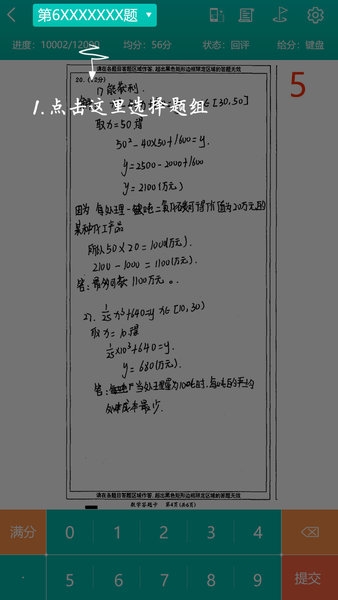 第6XXXXXXX题
进度：10002/12000 均分：56分 状态：回评 给分：键盘
请在各题目答题区域作答，超出黑色矩形边框限定区域的答案无效
20.(12分)
5
1.点击这里选择题组
不能获利. x∈[30,50]
取x=50得
50²-40×50+1600=y.
y=2500-2000+1600
y=2100(万元)
因为 每处理一吨二氧化碳可得价值为20万元的
某种化工产品
所以50×20=1000(万元).
2100-1000=1100(万元).
答: 1100万元。
2). 1/25 x³+640=y x∈[10,30)
取x=10得
1/25×10³+640=y.
y=680(万元).
答: 当处理量为10吨时, 每吨的平均
处理成本最少.
请在各题目答题区域作答，超出黑色矩形边框限定区域的答案无效
数学答题卡 第4页(共6页)
满分 0 1 2 3 4
. 5 6 7 8 9 提交